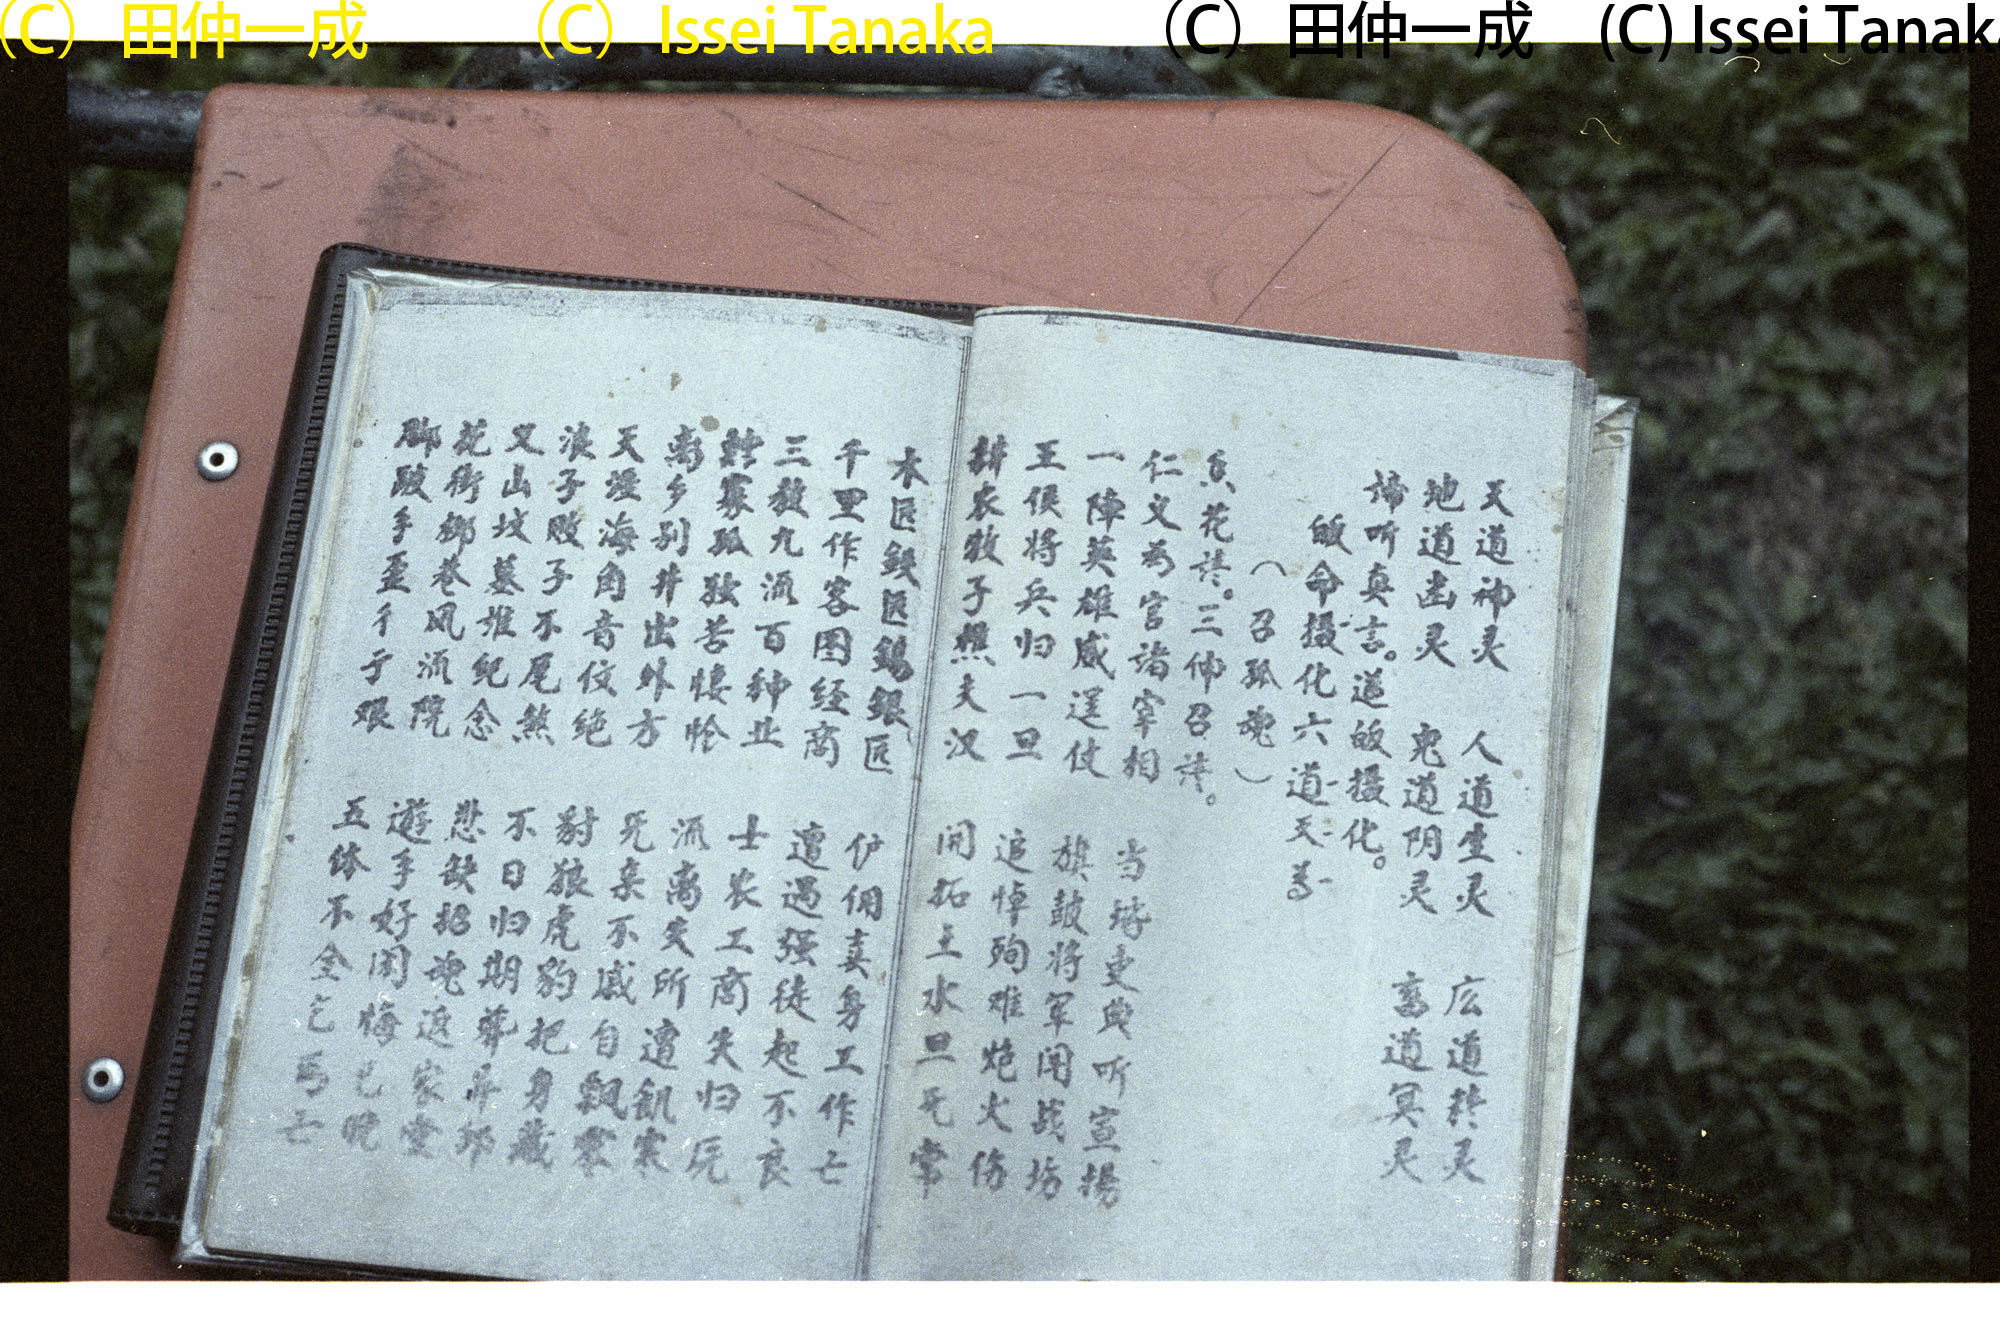 (C) 田仲一成 (C) Issei Tanaka (C) 田仲一成 (C) Issei Tanaka
天道神灵 人道生灵 広道 灵
地道幽灵 鬼道阴灵 道冥灵
谛听真言。道皈摄化。
皈命摄化六道天尊
(召孤魂)
香花请。三伸召请。
仁义为官诸宰相 当 吏 听宣揚
一陣英雄威逞仗 旗鼓将军闻战场
王侯将兵归一旦 追悼殉难炮火伤
耕农牧子樵夫汉 开拓土水旦死常
木匠鉄匠錫銀匠 佣卖身工作亡
千里作客图经商 遭遇强徒起不良
三教九流百种业 士农工商失归
鳏寡孤独苦悽怆 流离失所遭飢寒
离乡别井出外方 死亲不戚自飘零
天涯海角音 绝 豺狼虎豹把身藏
浪子败子不 不日归期葬异
义山坟墓堆纪念 悲 招魂返家堂
花街柳巷风流院 遊手好闲悔已晚
脚跛手歪行 艰 五体不全